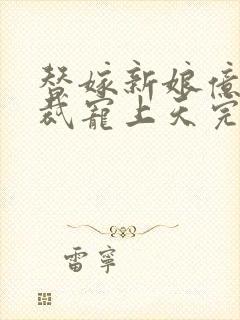 替嫁新娘億
裁寵上天完
雷寧